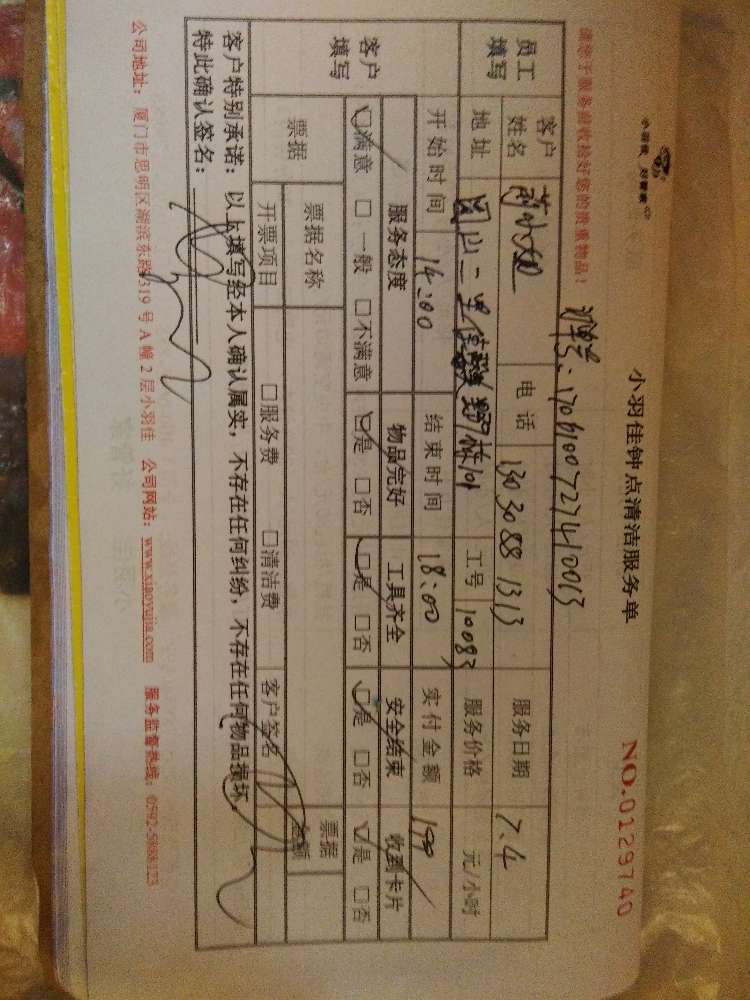 小羽佳钟点清洁服务单
NO.0129740
请您于服务前收拾好您的贵重物品！
单号：1706100727410013
员工填写 客户姓名 小姐 电话 13030881313 服务日期 7.4
地址 二里 工号 10083 服务价格 元/小时
开始时间 14:00 结束时间 18:00 实付金额
客户填写 服务态度 物品完好 工具齐全 安全结束 收到卡片
☑满意 □一般 □不满意 ☑是 □否 ☑是 □否 ☑是 □否 ☑是 □否
票据 票据名称 票据金额
开票项目 □服务费 □清洁费 客户签名
客户特别承诺：以上填写经本人确认属实，不存在任何纠纷，不存在任何物品损坏，
特此确认签名：
公司地址：厦门市思明区湖滨东路319号A幢2层小羽佳 公司网站：www.xiaoyujia.com 服务监督热线：0592-5888123